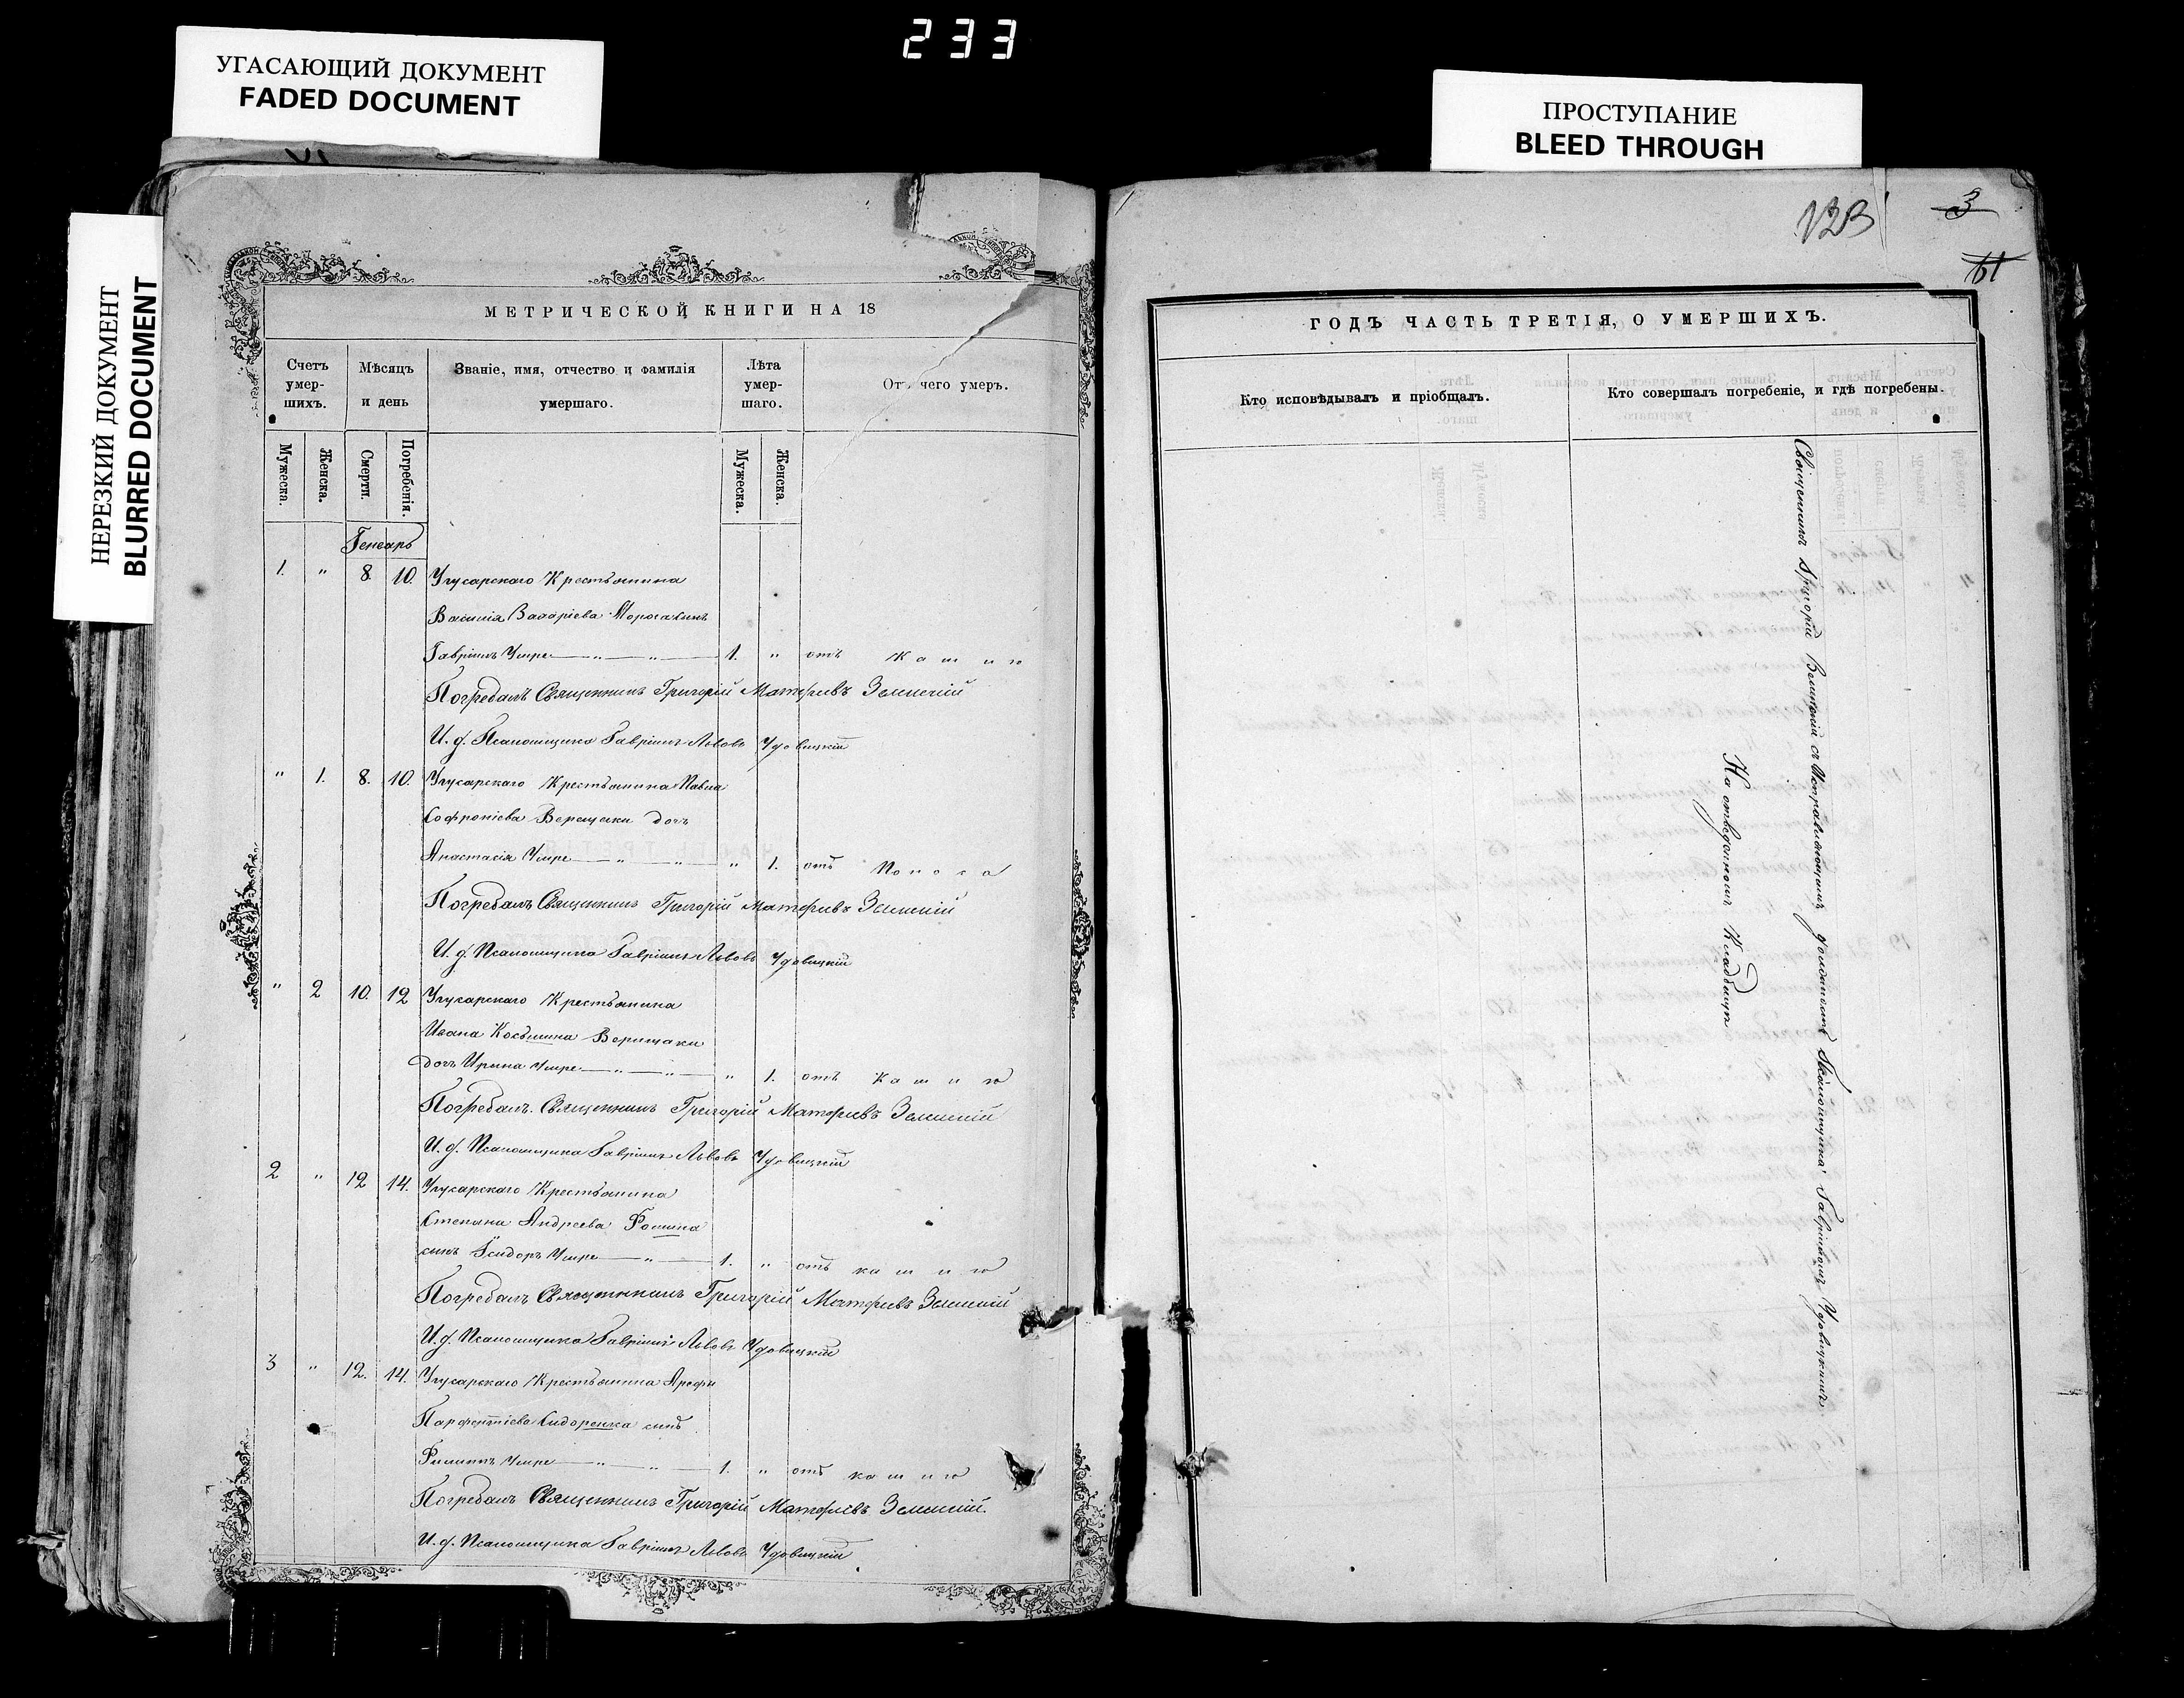 233
УГАСАЮЩИЙ ДОКУМЕНТ
FADED DOCUMENT
ПРОСТУПАНИЕ
BLEED THROUGH
НЕРЕЗКИЙ ДОКУМЕНТ
BLURRED DOCUMENT
МЕТРИЧЕСКОЙ КНИГИ НА 18
Счетъ умер-шихъ.
Мѣсяцъ и день
Званіе, имя, отчество и фамилія умершаго.
Лѣта умер-шаго.
Отъ чего умеръ.
Мужеска.
Женска.
Смерти.
Погребенія.
Мужеска.
Женска.
Генварь
1. " 8. 10. Крестьянина
Василія Мороза сынъ
Гавріилъ Умре — " — " — 1. " отъ Кашлю
Погребалъ Священникъ Григорій Матфіевъ
И. д. Псаломщика Гавріилъ Львовъ Удовицкій
" 1. 8. 10. Крестьянина Павла
Софроніева Верещаки дочь
Анастасія Умре — " — " — " 1. отъ Поноса
Погребалъ Священникъ Григорій Матфіевъ
И. д. Псаломщика Гавріилъ Львовъ Удовицкій
" 2 10. 12 Крестьянина
Ивана Косьмина Верищаки
дочь Ирина Умре — " — " — " 1. отъ Кашлю
Погребалъ Священникъ Григорій Матфіевъ
И. д. Псаломщика Гавріилъ Львовъ Удовицкій
2 " 12 14. Крестьянина
Степана Андреева Фомина
сынъ Ісидоръ Умре — " — 1. " отъ кашлю
Погребалъ Священникъ Григорій Матфіевъ
И. д. Псаломщика Гавріилъ Львовъ Удовицкій
3 " 12. 14. Крестьянина
Парфентіева Сидоренка сынъ
Филиппъ Умре — " — " — 1. " отъ кашлю
Погребалъ Священникъ Григорій Матфіевъ
И. д. Псаломщика Гавріилъ Львовъ Удовицкій
123
3
61
ГОДЪ ЧАСТЬ ТРЕТІЯ, О УМЕРШИХЪ.
Кто исповѣдывалъ и пріобщалъ.
Кто совершалъ погребеніе, и гдѣ погребены.
Священникъ Григорій съ Исправляющимъ должность Псаломщика Гавріиломъ Удовицкимъ
На отведенномъ Кладбищѣ